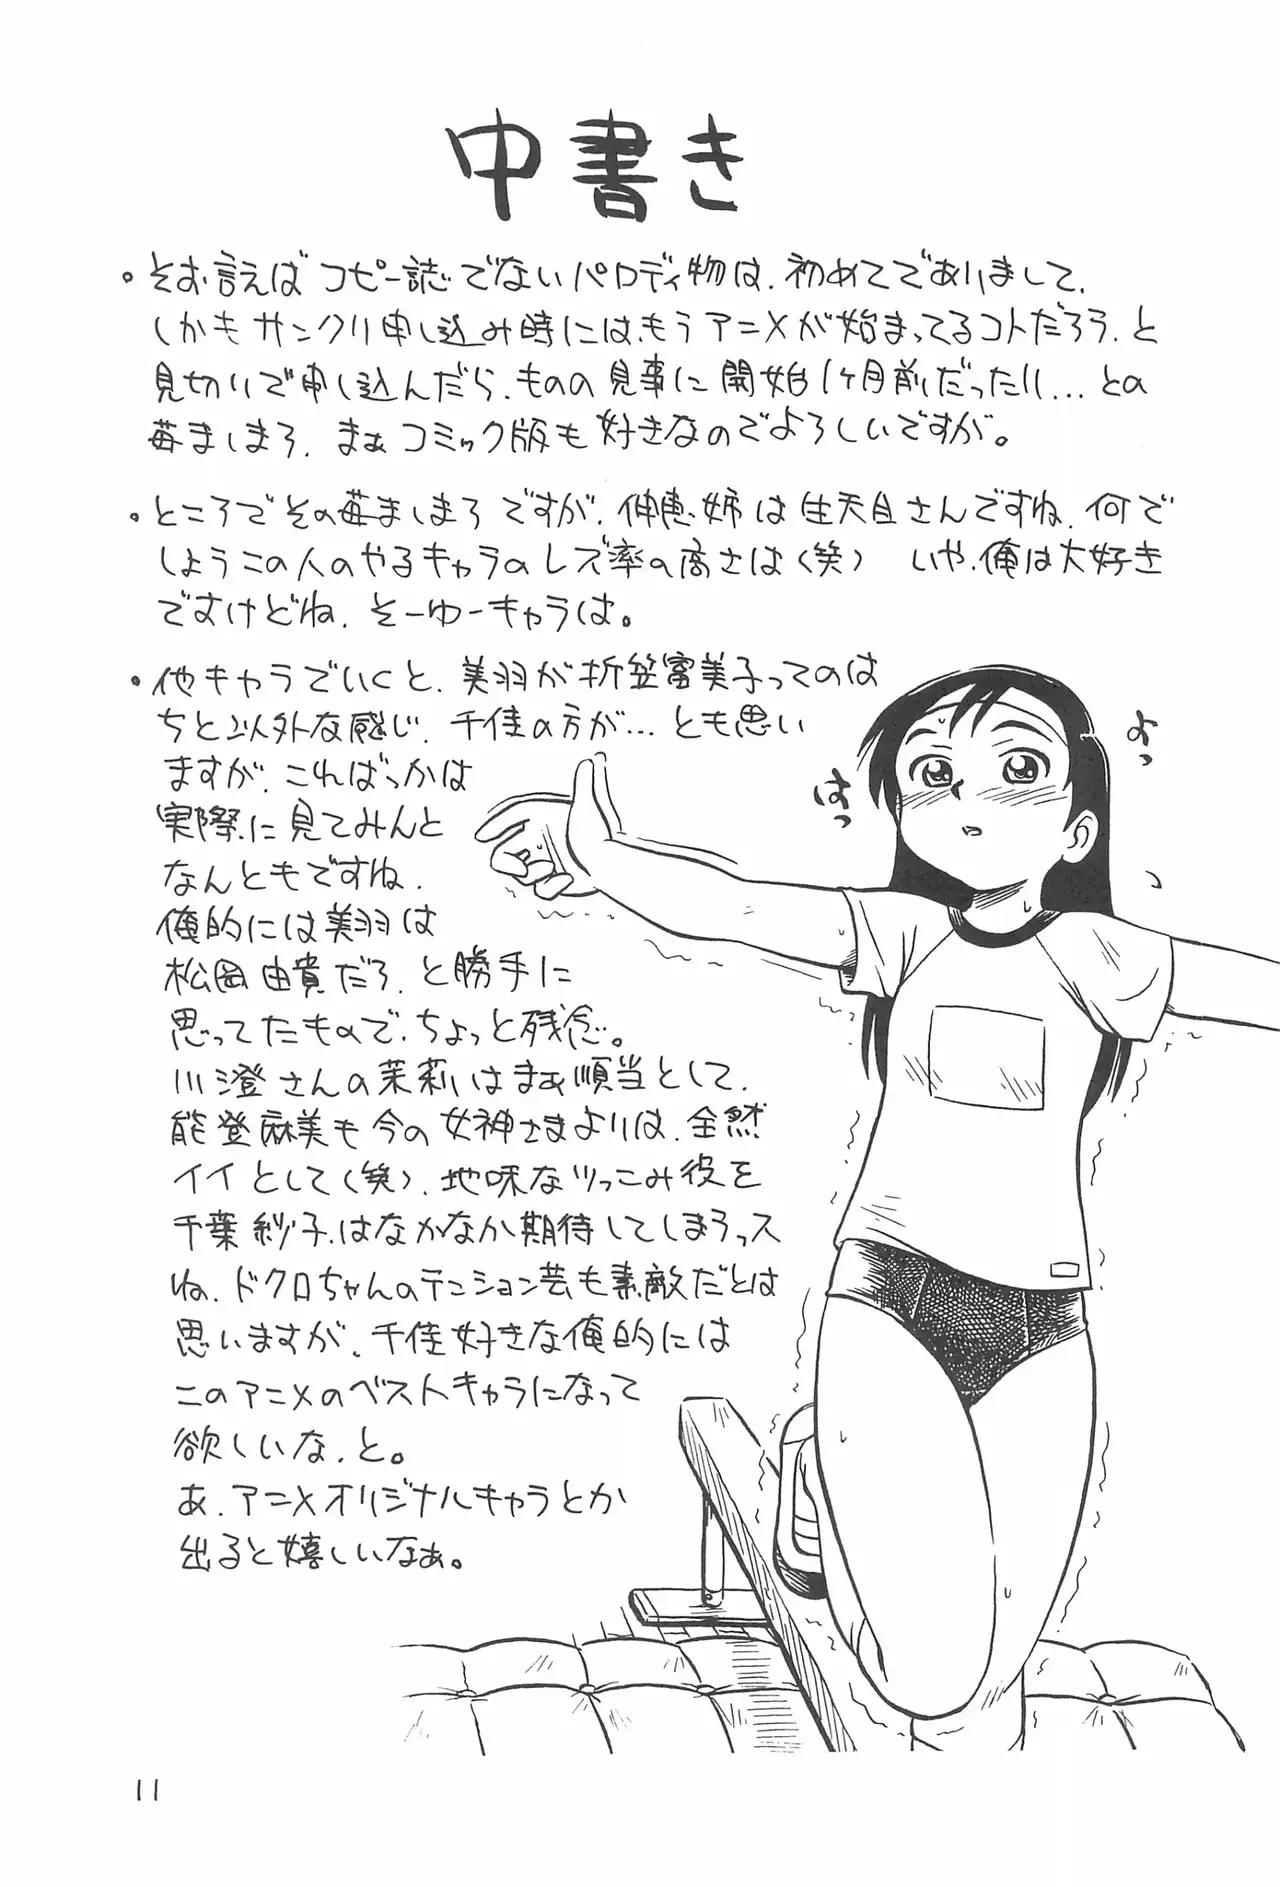 中書き
・そお言えば コピー誌でないパロディ物は、初めてでありまして、
しかもサンクリ申し込み時にはもうアニメが始まってるコトだろう、と
見切りで申し込んだら、ものの見事に開始1ヶ月前だったり…との
苺ましまろ、まぁコミック版も好きなのでよろしいですが。
・ところでその苺ましまろですが、伸恵姉は生天目さんですね、何で
しょうこの人のやるキャラのレズ率の高さは(笑) いや、俺は大好き
ですけどね、そーゆーキャラは。
・他キャラでいくと、美羽が折笠富美子ってのは
ちと以外な感じ、千佳の方が…とも思い
ますが、こればっかは
実際に見てみんと
なんともですね、
俺的には美羽は
松岡由貴だろ、と勝手に
思ってたもので、ちょっと残念。
川澄さんの茉莉はまぁ順当として、
能登麻美も今の女神さまよりは、全然
イイとして(笑)、地味なツっこみ役を
千葉紗子、はなかなか期待してしまうっス
ね、ドクロちゃんのテンション芸も素敵だとは
思いますが、千佳好きな俺的には
このアニメのベストキャラになって
欲しいな、と。
あ、アニメオリジナルキャラとか
出ると嬉しいなぁ。
よっ
はっ
11